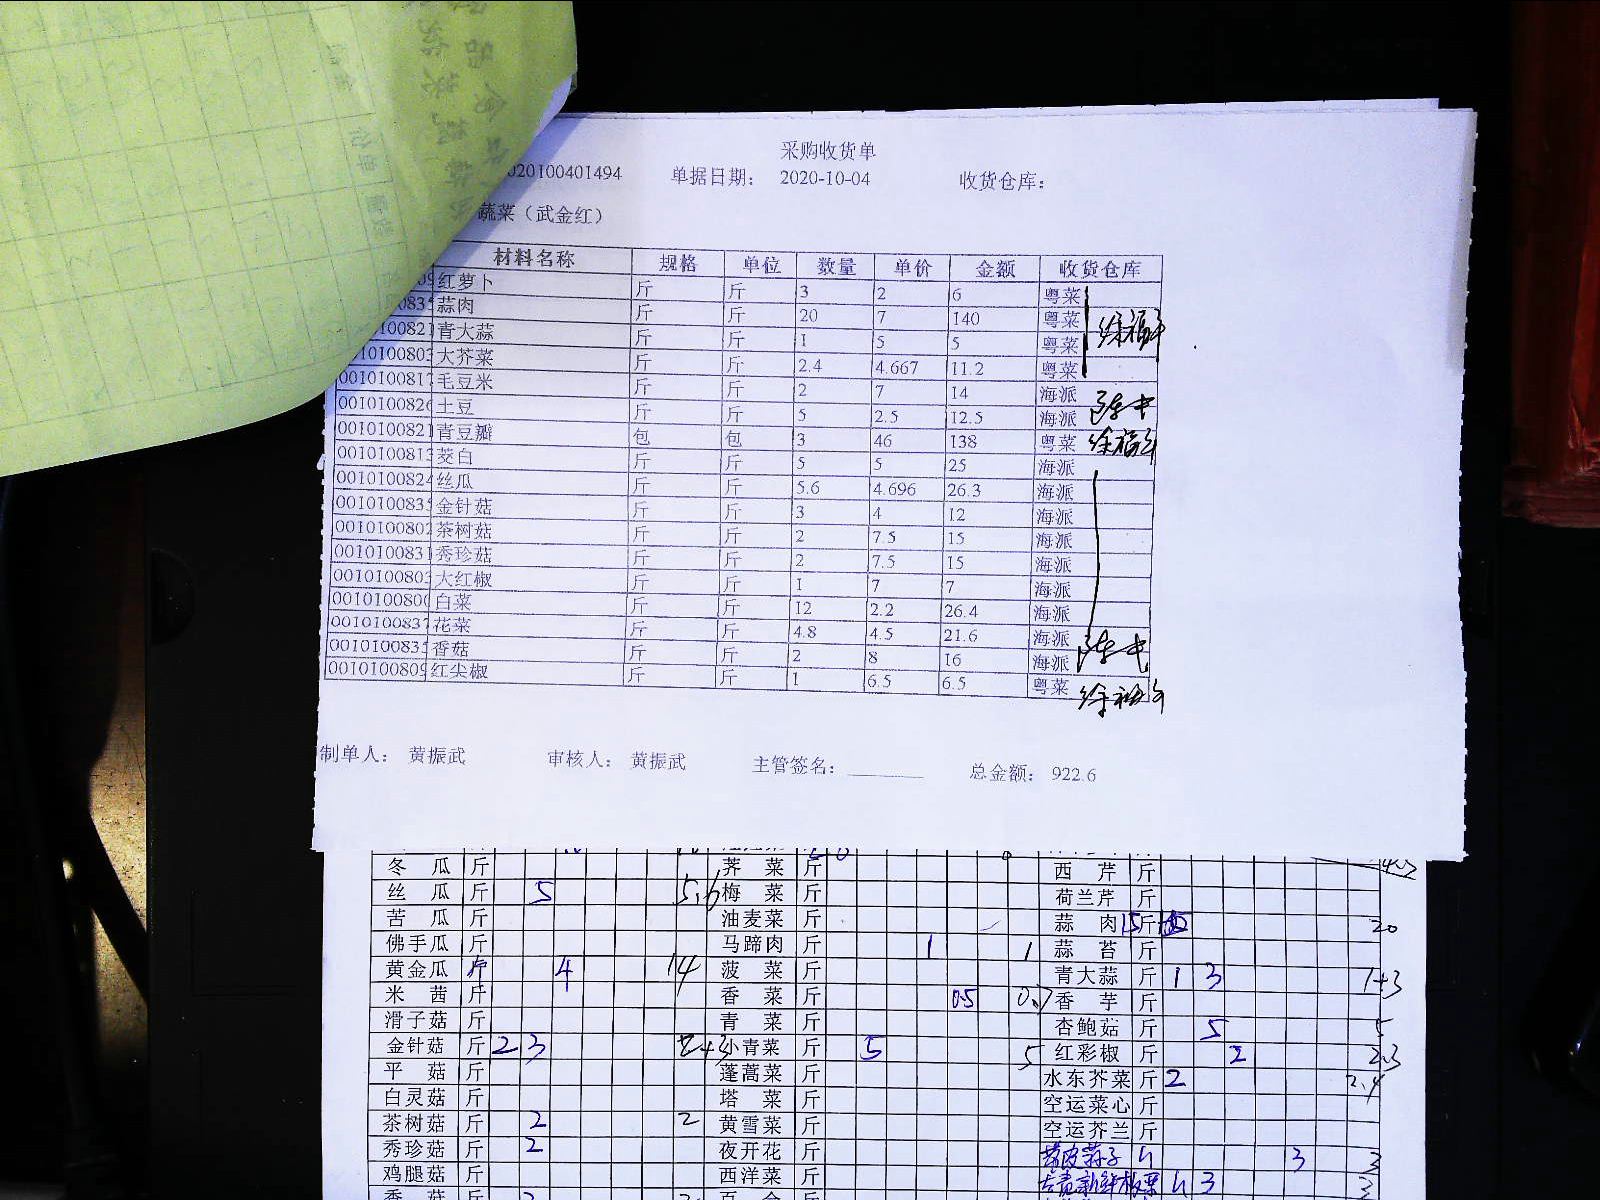 采购收货单
020100401494 单据日期： 2020-10-04 收货仓库：
蔬菜（武金红）
材料名称 规格 单位 数量 单价 金额 收货仓库
红萝卜 斤 斤 3 2 6 粤菜
蒜肉 斤 斤 20 7 140 粤菜
10082 青大蒜 斤 斤 1 5 5 粤菜
010100803 大芥菜 斤 斤 2.4 4.667 11.2 粤菜
0010100817 毛豆米 斤 斤 2 7 14 海派
0010100826 土豆 斤 斤 5 2.5 12.5 海派
0010100821 青豆瓣 包 包 3 46 138 粤菜
0010100813 茭白 斤 斤 5 5 25 海派
0010100824 丝瓜 斤 斤 5.6 4.696 26.3 海派
0010100835 金针菇 斤 斤 3 4 12 海派
0010100802 茶树菇 斤 斤 2 7.5 15 海派
0010100831 秀珍菇 斤 斤 2 7.5 15 海派
0010100803 大红椒 斤 斤 1 7 7 海派
0010100800 白菜 斤 斤 12 2.2 26.4 海派
0010100837 花菜 斤 斤 4.8 4.5 21.6 海派
0010100835 香菇 斤 斤 2 8 16 海派
0010100809 红尖椒 斤 斤 1 6.5 6.5 粤菜
制单人： 黄振武 审核人： 黄振武 主管签名： 总金额： 922.6
冬瓜 斤 荠菜 斤 西芹 斤
丝瓜 斤 5 5.6 梅菜 斤 荷兰芹 斤
苦瓜 斤 油麦菜 斤 蒜肉 15 斤 20
佛手瓜 斤 马蹄肉 斤 1 1 蒜苔 斤
黄金瓜 斤 4 14 菠菜 斤 青大蒜 斤 1 3 1+3
米茜 斤 香菜 斤 0.5 0.7 香芋 斤
滑子菇 斤 青菜 斤 杏鲍菇 斤 5 5
金针菇 斤 2 3 2+3 小青菜 斤 5 5 红彩椒 斤 2 2.3
平菇 斤 蓬蒿菜 斤 水东芥菜 斤 2 2.4
白灵菇 斤 塔菜 斤 空运菜心 斤
茶树菇 斤 2 2 黄雪菜 斤 空运芥兰 斤
秀珍菇 斤 2 夜开花 斤 3 3
鸡腿菇 斤 西洋菜 斤 3 3